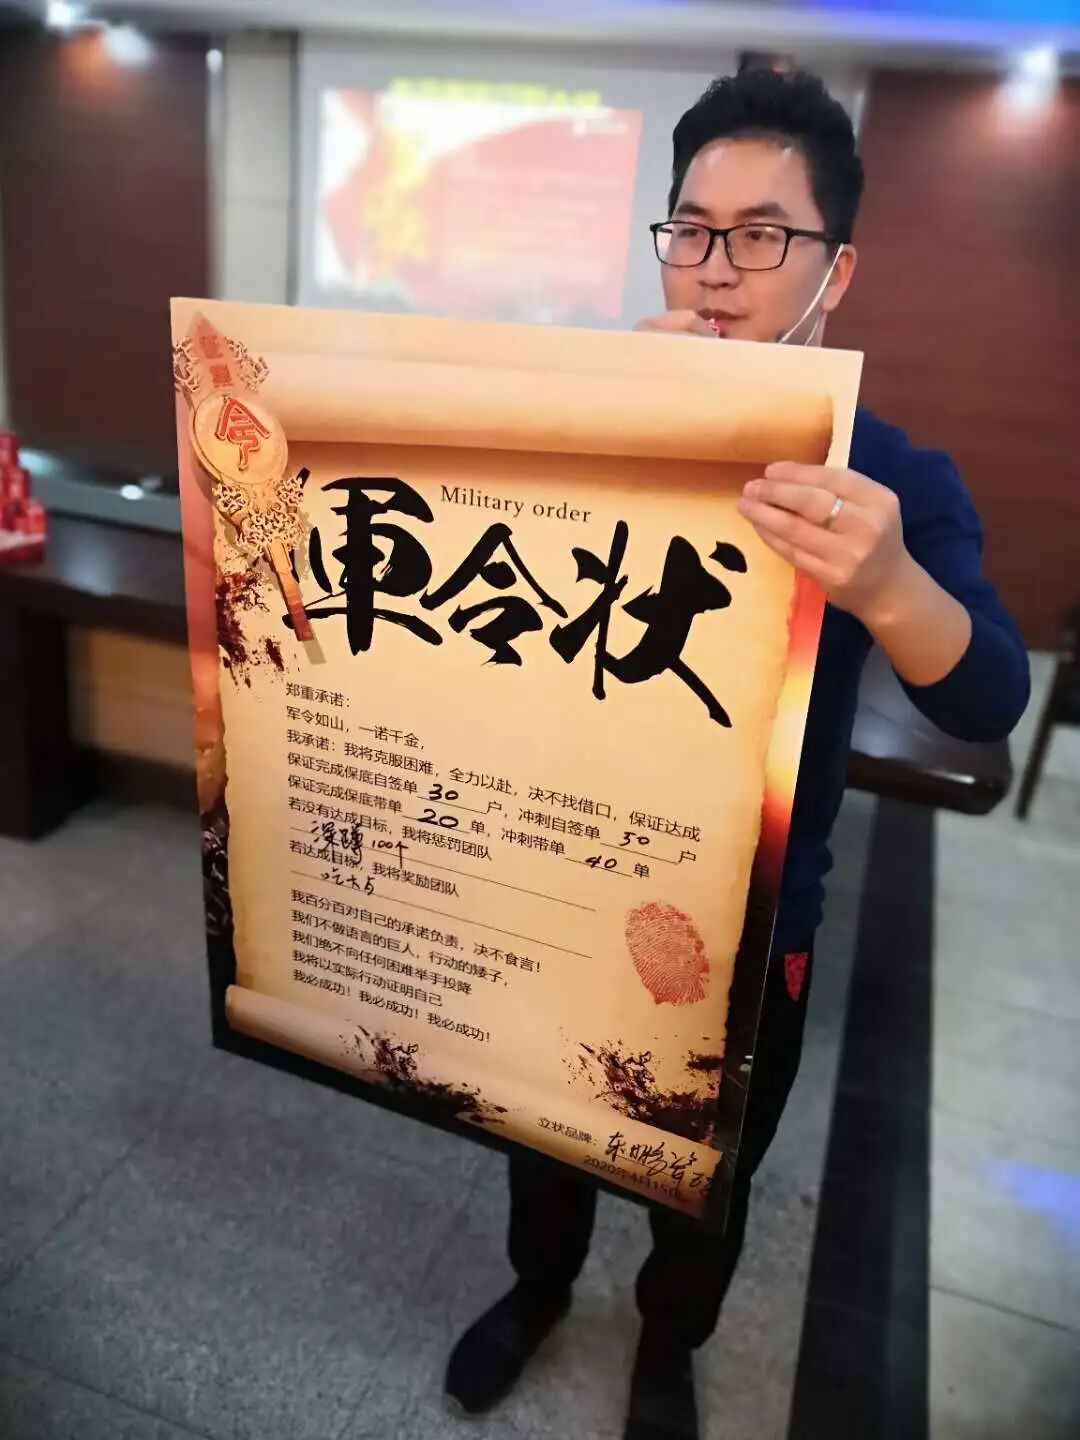 令
Military order
軍令状
郑重承诺：
军令如山，一诺千金，
我承诺：我将克服困难，全力以赴，决不找借口，保证达成
保证完成保底自签单 30 户，冲刺自签单 50 户
保证完成保底带单 20 单，冲刺带单 40 单
若没有达成目标，我将惩罚团队
深蹲100个
若达成目标，我将奖励团队
吃大
我百分百对自己的承诺负责，决不食言！
我们不做语言的巨人，行动的矮子，
我们绝不向任何困难举手投降
我将以实际行动证明自己
我必成功！我必成功！我必成功！
立状品牌：东鹏瓷砖
2020年4月15日